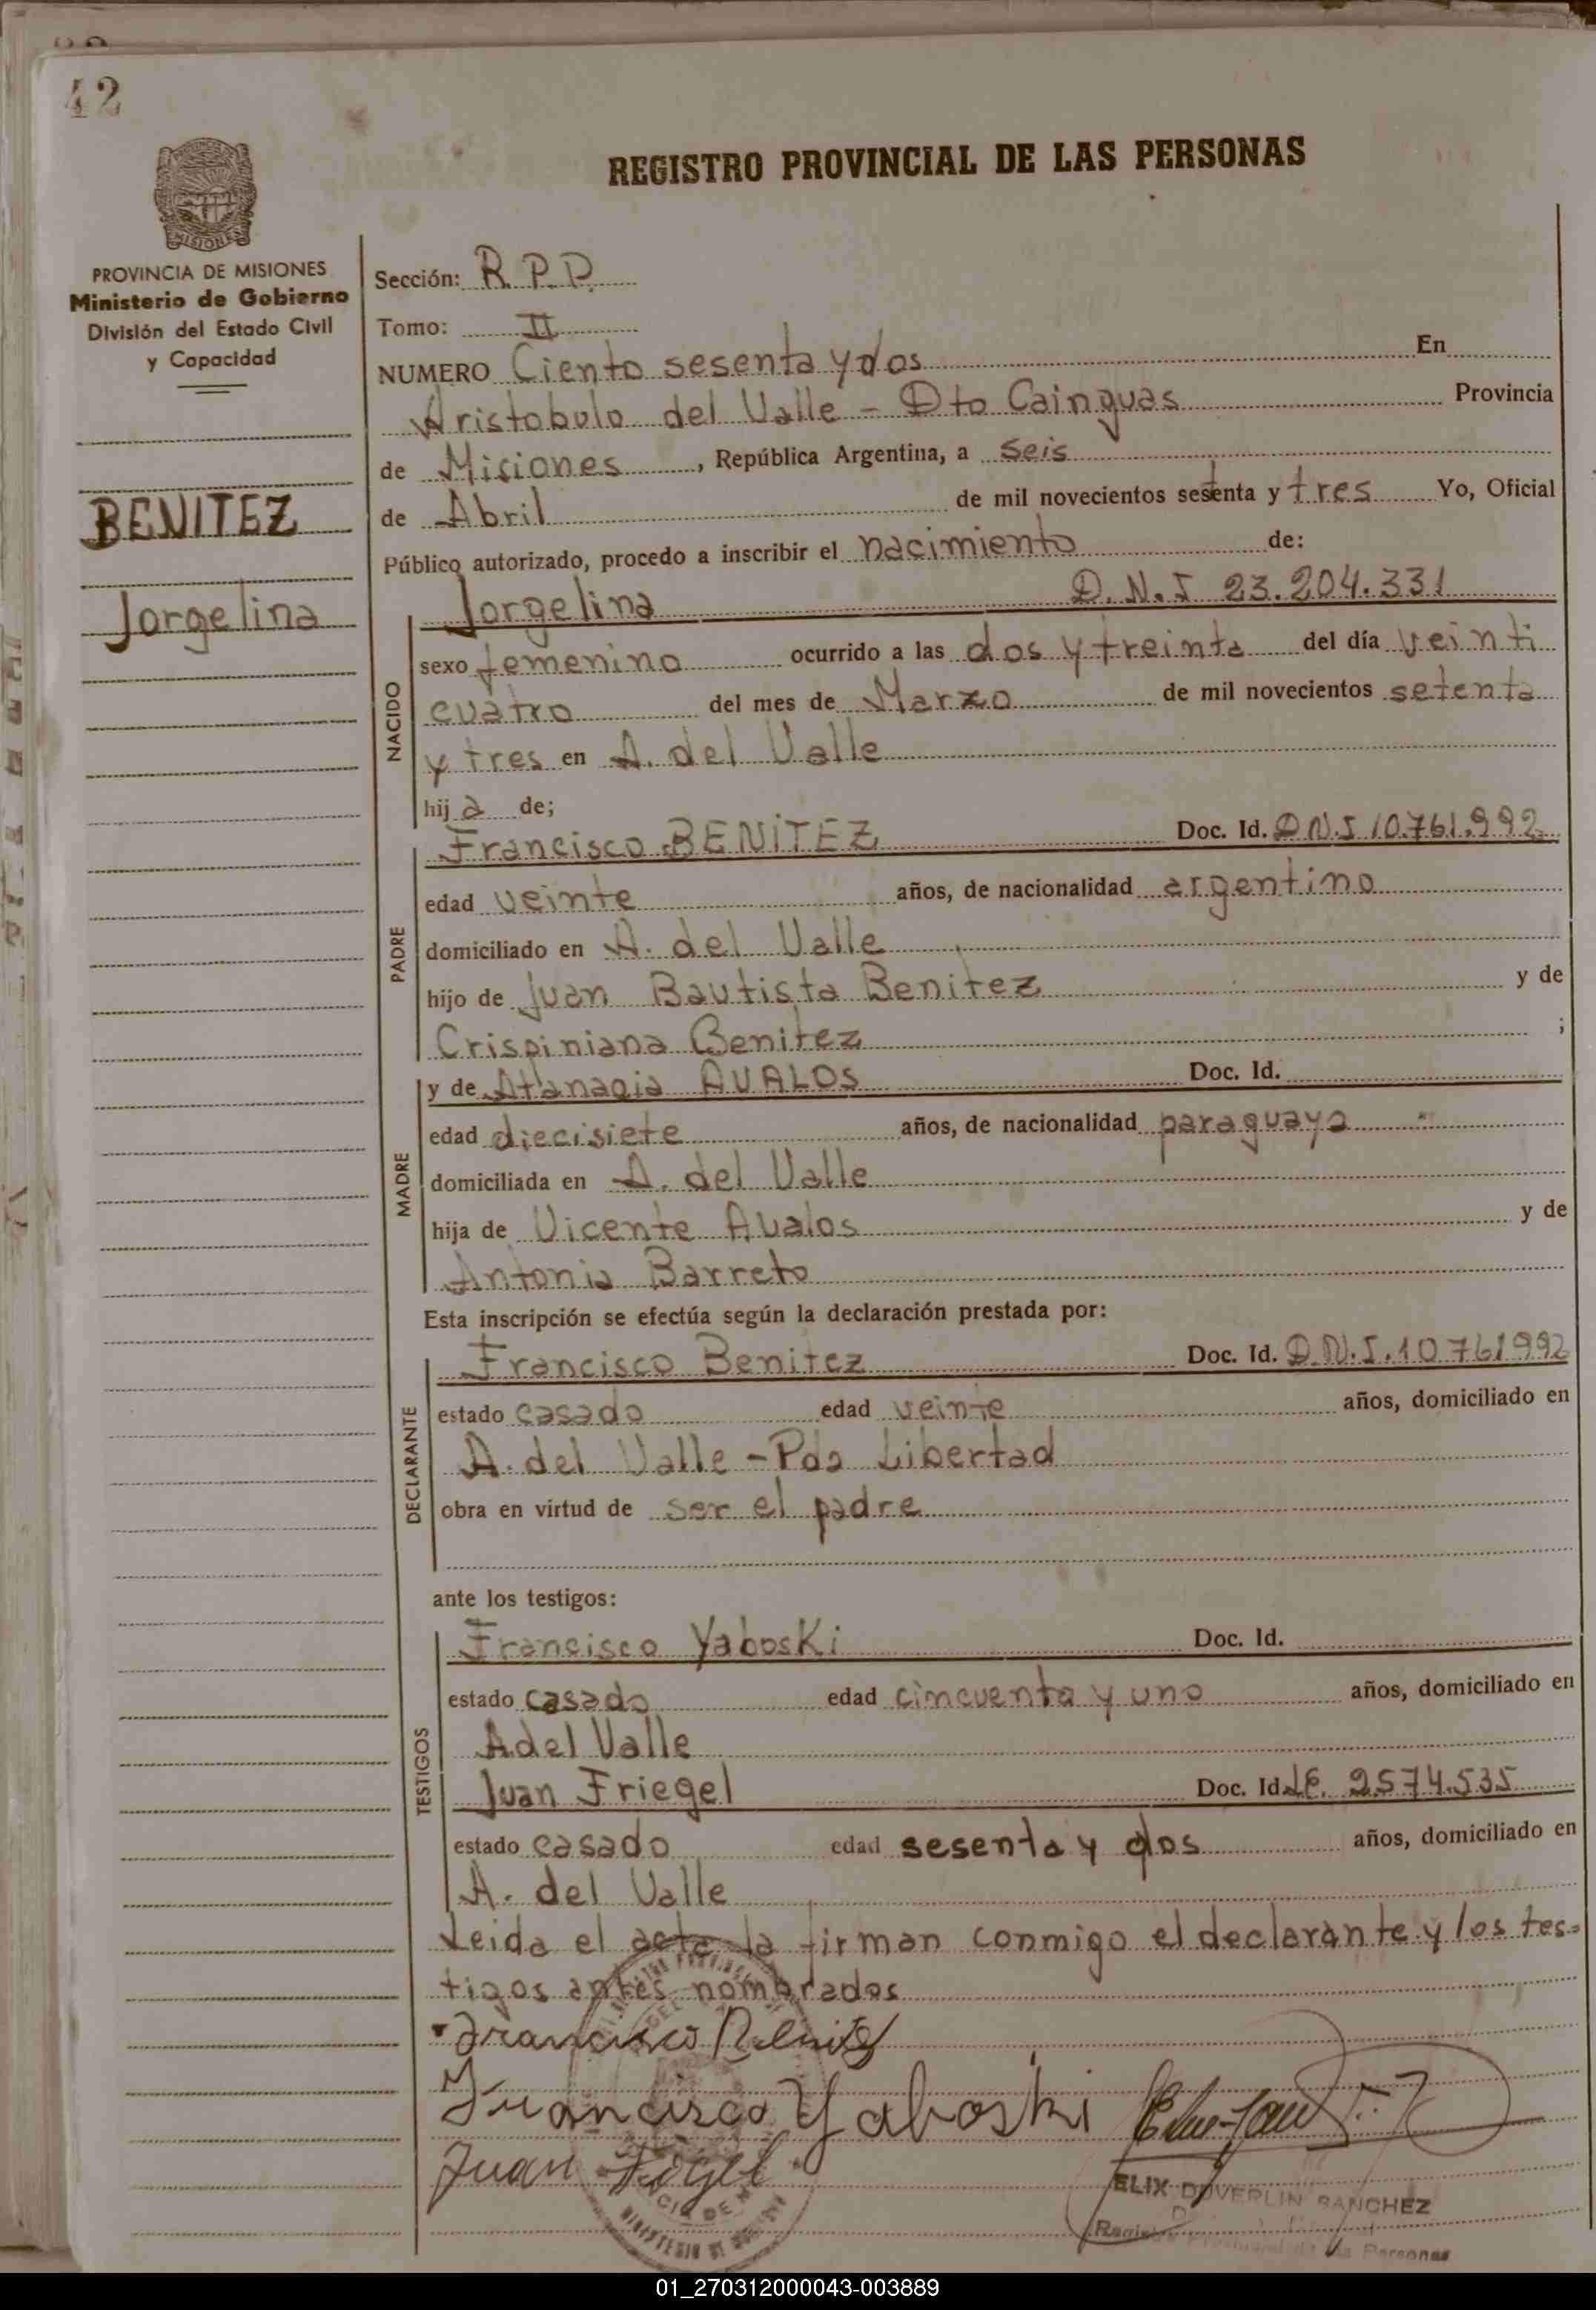 42
REGISTRO PROVINCIAL DE LAS PERSONAS
MISIONES
PROVINCIA DE MISIONES
Ministerio de Gobierno
División del Estado Civil
y Capacidad
BENITEZ
Jorgelina
Sección: R.P.P.
Tomo: II
NUMERO Ciento sesenta y dos En
Aristobulo del Valle - Dto Cainguas Provincia
de Misiones, República Argentina, a seis
de Abril de mil novecientos setenta y tres Yo, Oficial
Público autorizado, procedo a inscribir el nacimiento de:
Jorgelina D.N.I 23.204.331
NACIDO
sexo femenino ocurrido a las dos y treinta del día veinti
cuatro del mes de Marzo de mil novecientos setenta
y tres en A. del Valle
hija de;
Francisco BENITEZ Doc. Id. D.N.I 10.761.992
PADRE
edad veinte años, de nacionalidad argentino
domiciliado en A. del Valle
hijo de Juan Bautista Benitez y de
Crispiniana Benitez ;
y de Atanagia AVALOS Doc. Id.
MADRE
edad diecisiete años, de nacionalidad paraguaya
domiciliada en A. del Valle
hija de Vicente Avalos y de
Antonia Barreto
Esta inscripción se efectúa según la declaración prestada por:
Francisco Benitez Doc. Id. D.N.I. 10761992
DECLARANTE
estado casado edad veinte años, domiciliado en
A. del Valle - Pda Libertad
obra en virtud de ser el padre
ante los testigos:
Francisco Yaboski Doc. Id.
TESTIGOS
estado casado edad cincuenta y uno años, domiciliado en
A del Valle
Juan Friegel Doc. Id. L.E. 2.574.535
estado casado edad sesenta y dos años, domiciliado en
A. del Valle
Leida el acta la firman conmigo el declarante y los tes-
tigos antes nombrados
Francisco Benitez
Francisco Yaboski
Juan Frigel
ELIX DUVERLIN SANCHEZ
Personas
01_270312000043-003889